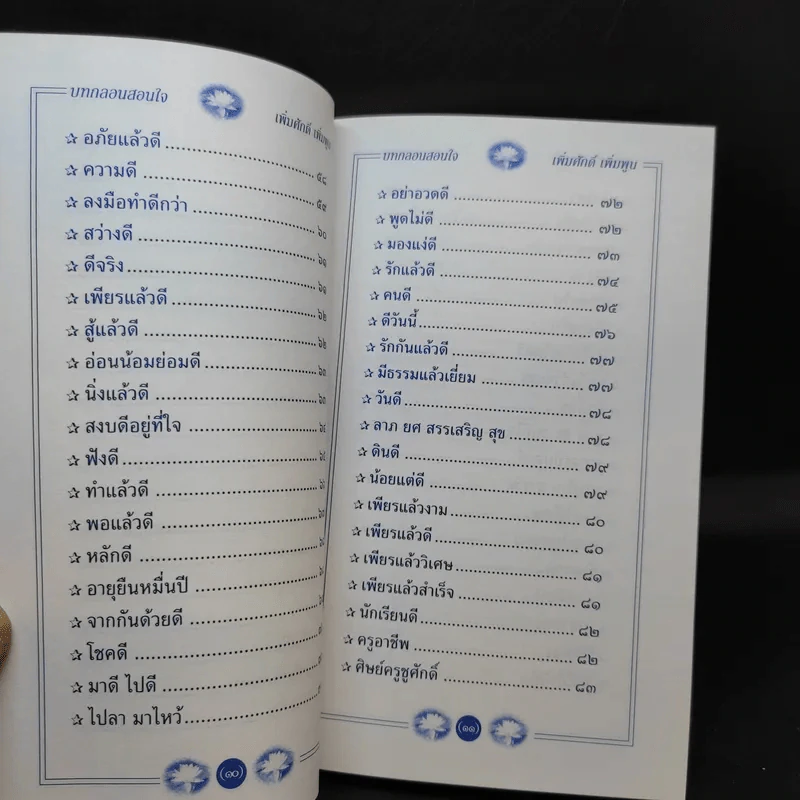 บทกลอนสอนใจ
เพิ่มศักดิ์ เพิ่มพูน
✰ อภัยแล้วดี ................ ๕๘
✰ ความดี ................ ๕๙
✰ ลงมือทำดีกว่า ................ ๖๐
✰ สว่างดี ................ ๖๑
✰ ดีจริง ................ ๖๑
✰ เพียรแล้วดี ................ ๖๒
✰ สู้แล้วดี ................ ๖๒
✰ อ่อนน้อมย่อมดี ................ ๖๓
✰ นิ่งแล้วดี ................ ๖๓
✰ สงบดีอยู่ที่ใจ ................ ๖๔
✰ ฟังดี ................
✰ ทำแล้วดี ................
✰ พอแล้วดี ................
✰ หลักดี ................
✰ อายุยืนหมื่นปี ................
✰ จากกันด้วยดี ................
✰ โชคดี ................
✰ มาดี ไปดี ................
✰ ไปลา มาไหว้ ................
(๑๐)
บทกลอนสอนใจ
เพิ่มศักดิ์ เพิ่มพูน
✰ อย่าอวดดี ................ ๗๒
✰ พูดไม่ดี ................ ๗๒
✰ มองแง่ดี ................ ๗๓
✰ รักแล้วดี ................ ๗๔
✰ คนดี ................ ๗๕
✰ ดีวันนี้ ................ ๗๖
✰ รักกันแล้วดี ................ ๗๗
✰ มีธรรมแล้วเยี่ยม ................ ๗๗
✰ วันดี ................ ๗๘
✰ ลาภ ยศ สรรเสริญ สุข ................ ๗๘
✰ ดินดี ................ ๗๙
✰ น้อยแต่ดี ................ ๗๙
✰ เพียรแล้วงาม ................ ๘๐
✰ เพียรแล้วดี ................ ๘๐
✰ เพียรแล้ววิเศษ ................ ๘๑
✰ เพียรแล้วสำเร็จ ................ ๘๑
✰ นักเรียนดี ................ ๘๒
✰ ครูอาชีพ ................ ๘๒
✰ ศิษย์ครูชูศักดิ์ ................ ๘๓
(๑๑)